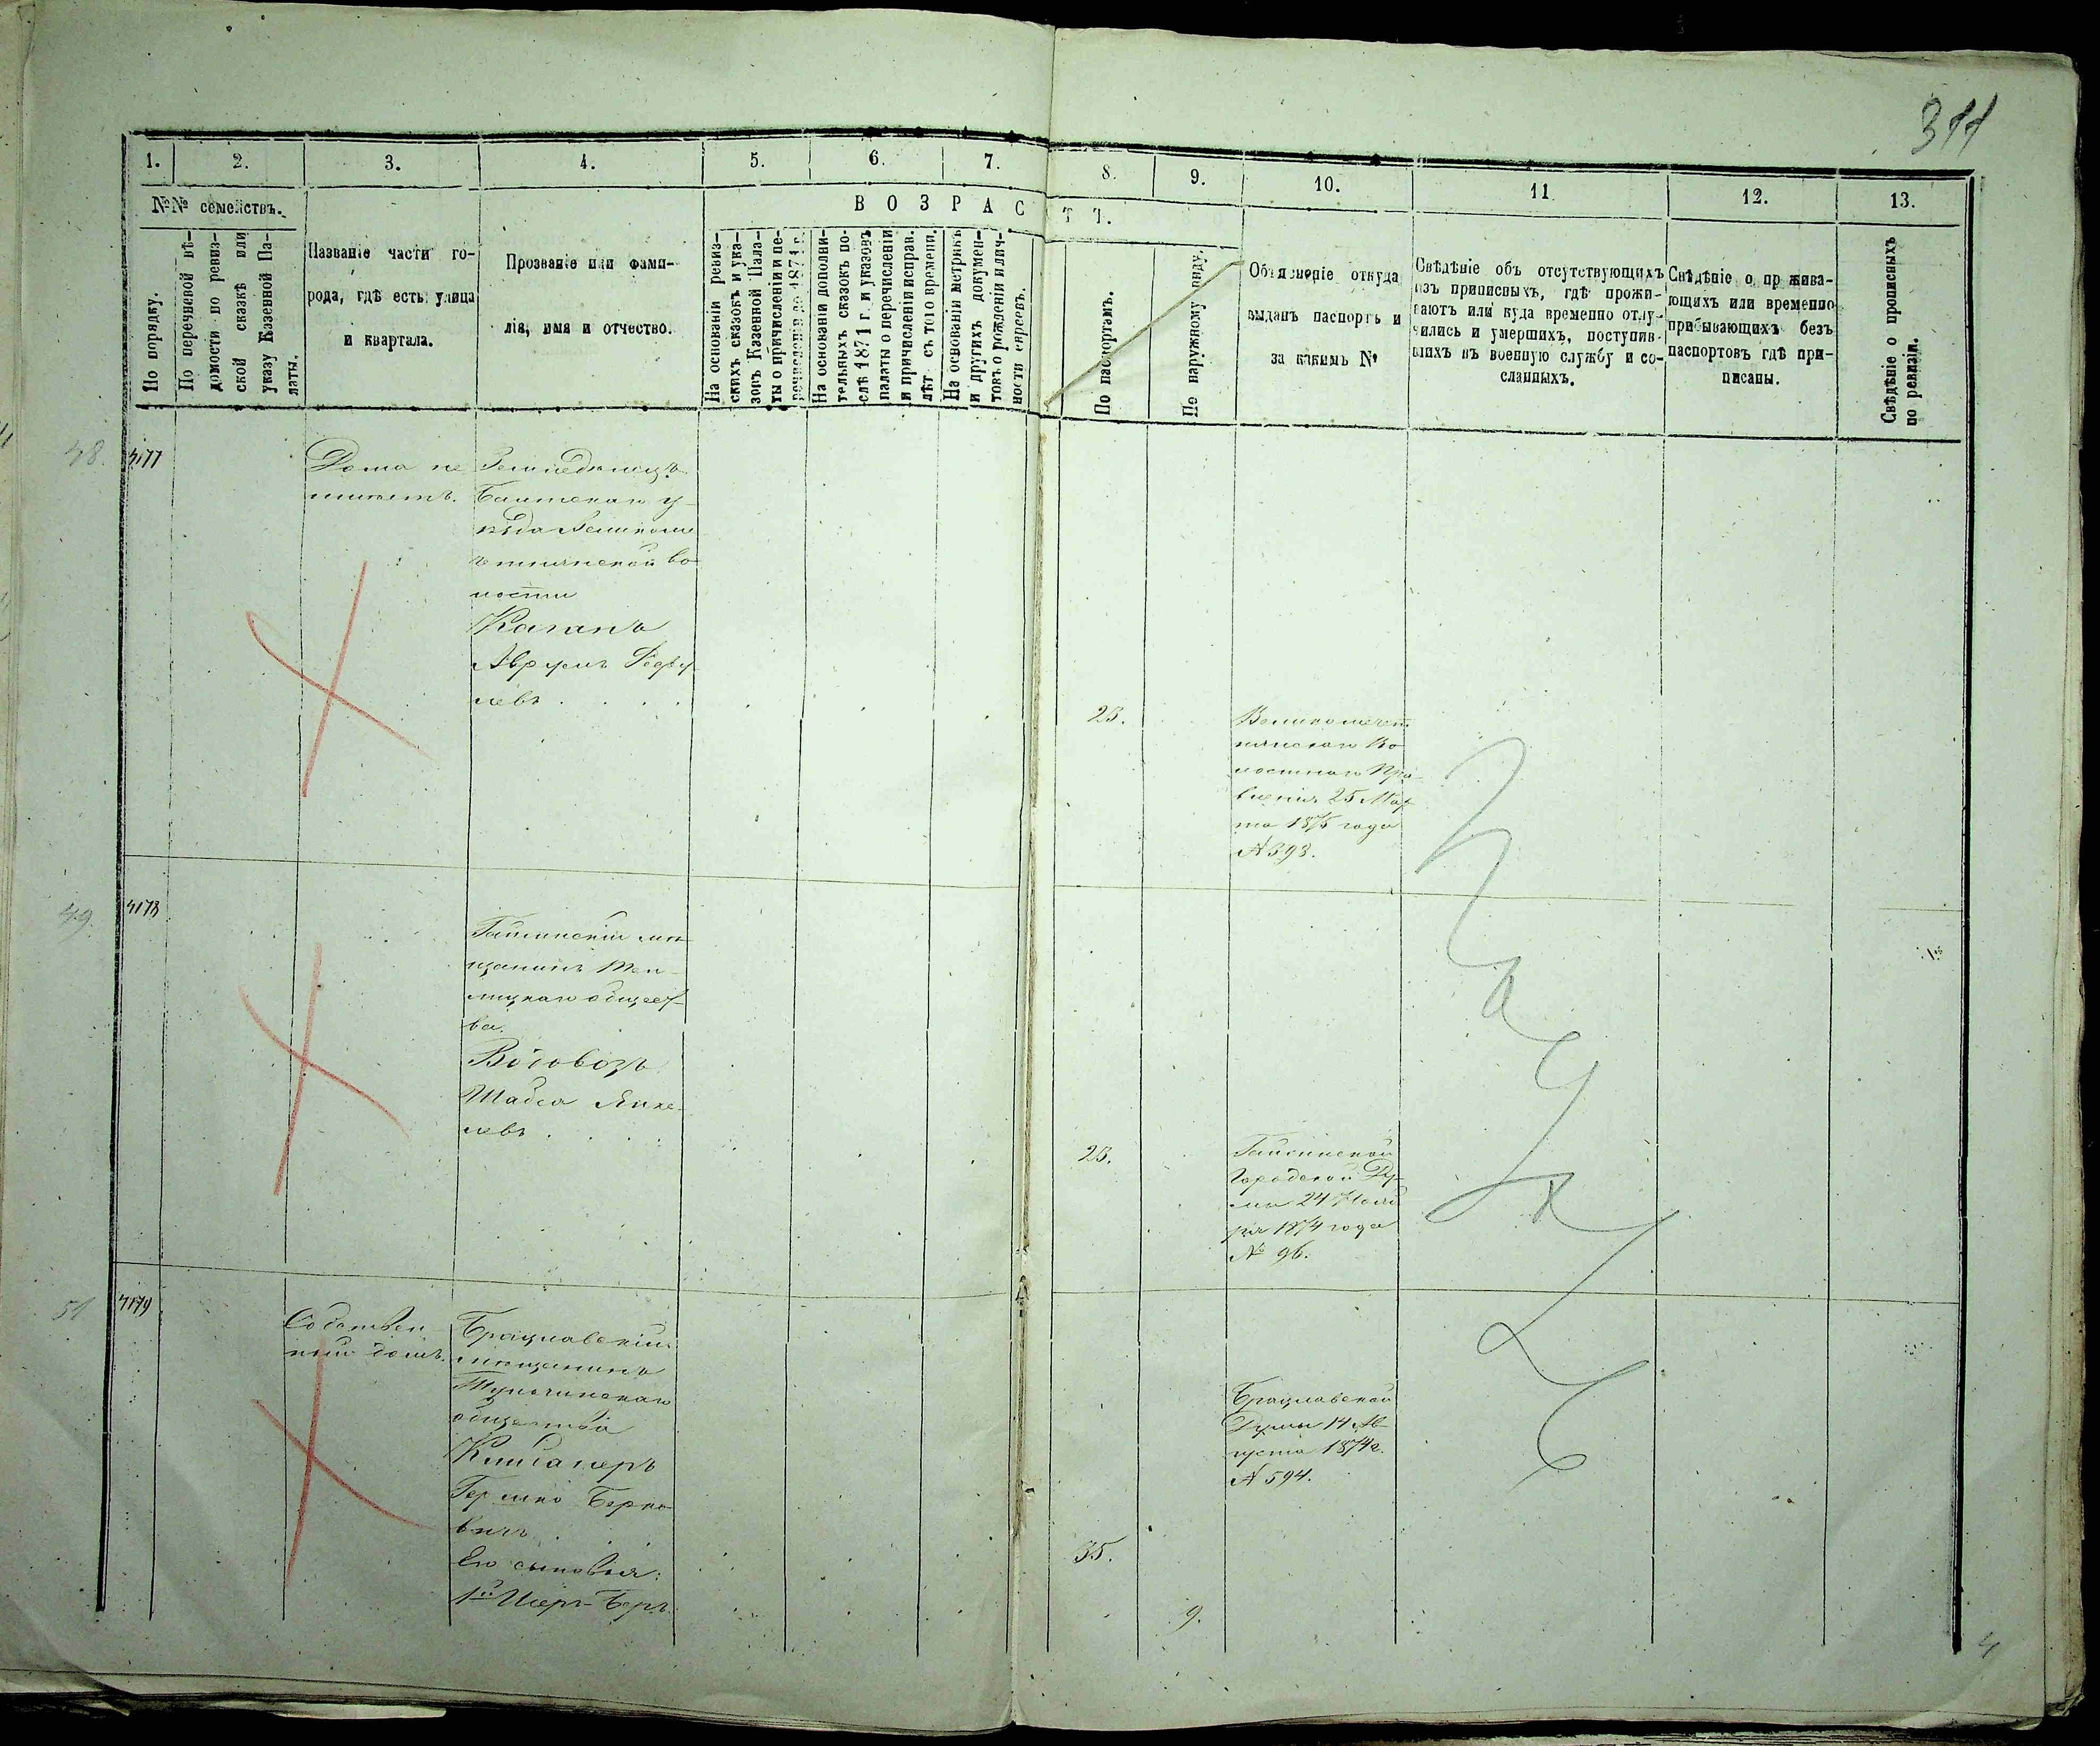 311
1. 2. 3. 4. 5. 6. 7. 8. 9. 10. 11 12. 13.
№№ семействъ.
ВОЗРАСТЪ.
По порядку.
По перечневой вѣ-
домости по ревиз-
ской сказкѣ или
указу Казенной Па-
латы.
Названіе части го-
рода, гдѣ есть улица
и квартала.
Прозваніе или фами-
лія, имя и отчество.
На основаніи ревиз-
скихъ сказокъ и ука-
зовъ Казенной Пала-
ты о причисленіи и пе-
речисленіи до 1871 г.
На основаніи дополни-
тельныхъ сказокъ по-
слѣ 1871 г. и указовъ
палаты о перечисленіи
и причисленіи исправ.
лѣт съ того времени.
На основаніи метрикъ
и другихъ докумен-
товъ о рожденіи и лич-
ности евреевъ.
По паспортамъ.
По наружному виду.
Объясненіе откуда
выданъ паспортъ и
за какимъ №
Свѣдѣніе объ отсутствующихъ
изъ приписныхъ, гдѣ прожи-
ваютъ или куда временно отлу-
чились и умершихъ, поступив-
шихъ въ военную службу и со-
сланныхъ.
Свѣдѣніе о прожива-
ющихъ или временно
прибывающихъ безъ
паспортовъ гдѣ при-
писаны.
Свѣдѣніе о прописныхъ
по ревизіи.
48.
4177
Дома не
имѣетъ.
Земледѣлецъ
Балтскаго у-
ѣзда Великоме
четнянской во
лости
Каганъ
Аврумъ
левъ
23.
Великомечет
нянскаго Во
лостнаго Пра-
вленія 25 Мар
та 1875 года
№ 398.
49.
4178
Гайсинскій мѣ
щанинъ Теп-
лицкаго общест
ва.
Воловозъ
Шабса Янке-
левъ
23.
Гайсинской
Городской Ду-
мы 24 Нояб
ря 1874 года
№ 96.
4179
Собствен
ный домъ.
Брацлавскій
мѣщанинъ
Тульчинскаго
общества
Гершко Берко
вичъ
Его сыновья:
1й Шеръ-Беръ
Брацлавской
Думы 14 Ав-
густа 1874 г.
№ 594.
35.
9.